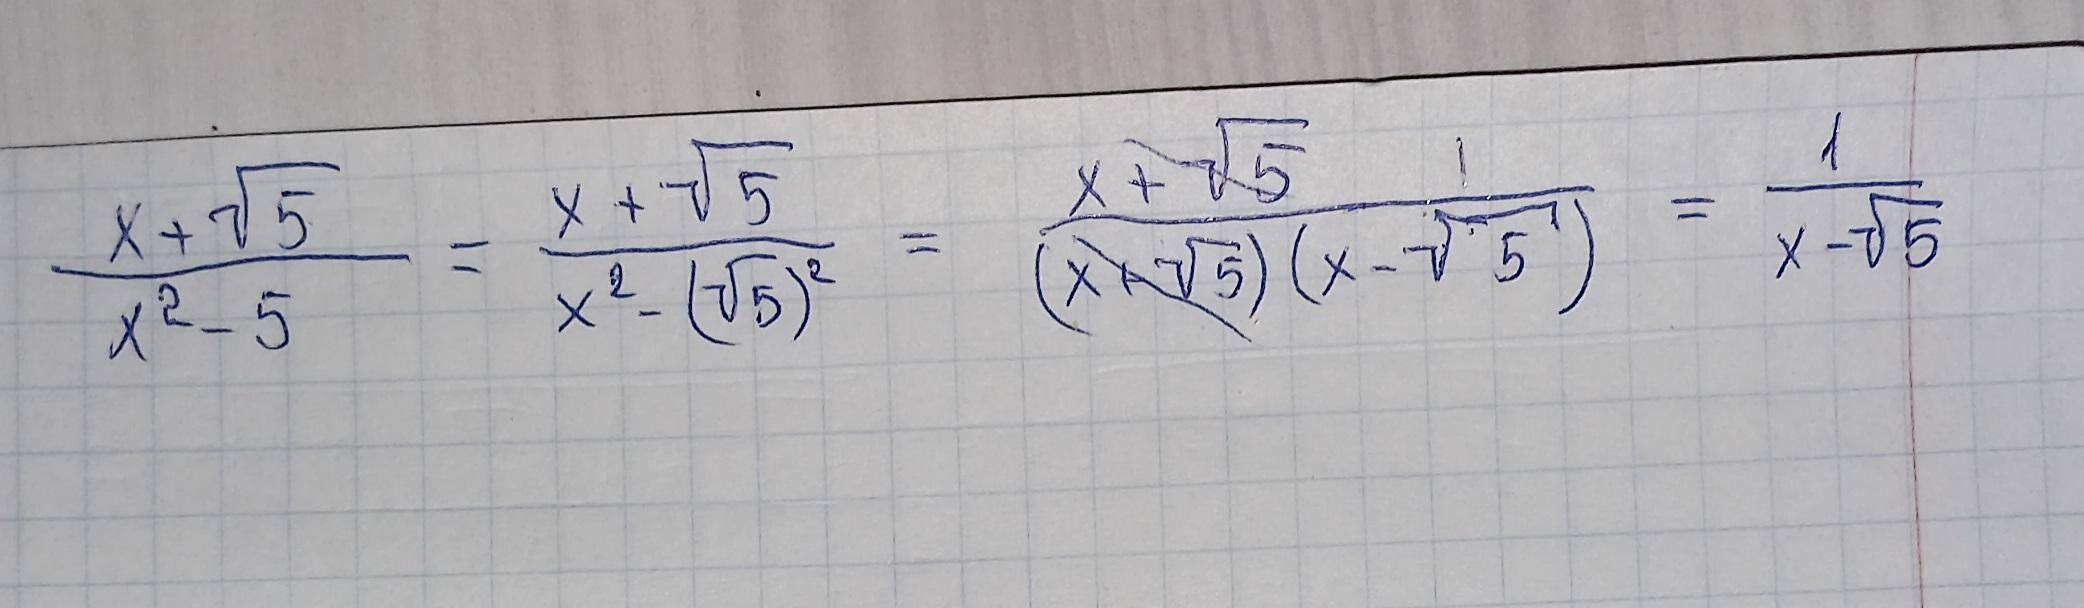 (x+√5)/(x²-5) = (x+√5)/(x²-(√5)²) = (x+√5)/((x+√5)(x-√5)) 1 = 1/(x-√5)